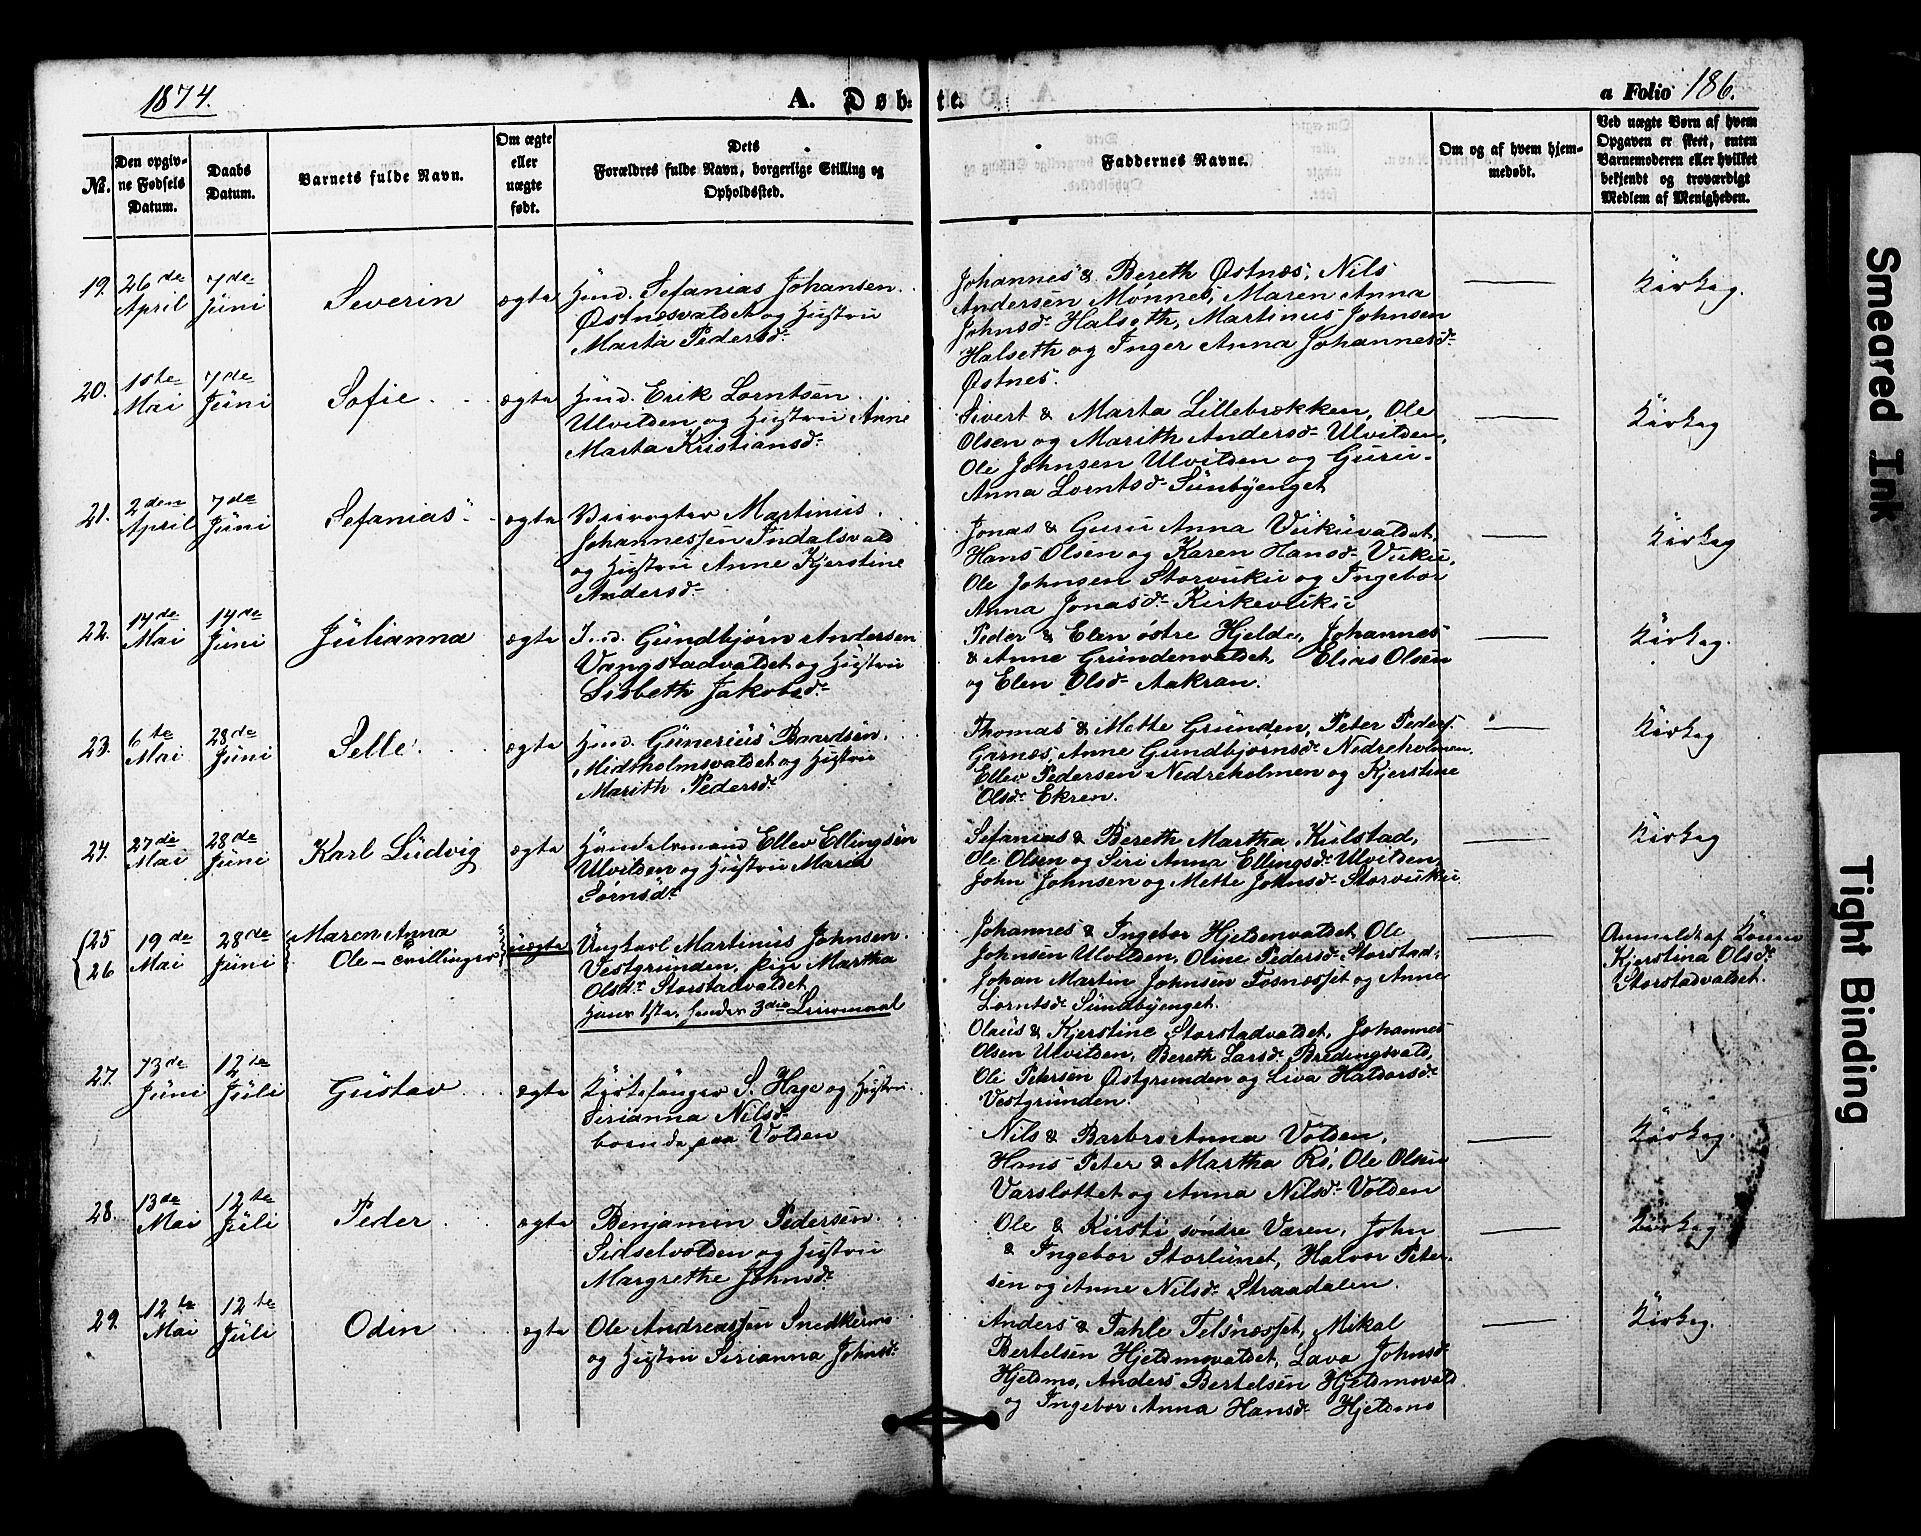 1874.
A. Døb-
te.
a Folio 186.
No.
Den opgiv-
ne Fødsels
Datum.
Daabs
Datum.
Barnets fulde Navn.
Om ægte
eller
uægte
født.
Dets
Forældres fulde Navn, borgerlige Stilling og
Opholdssted.
Faddernes Navne.
Om og af hvem hjem-
medøbt.
Ved uægte Børn af hvem
Opgaven er skeet, enten
Barnemoderen eller hvilket
bekjendt og troværdigt
Medlem af Menigheden.
19. 26de April 7de Juni Severin ægte Huusmd. Sefanias Johansen
Østnesvaldet og Hustru
Marta Pedersd.
Johannes & Bereth Østnæs, Nils
Andersen Mønnes, Maren Anna
Johnsd. Halseth, Martinus Johnsen
Halseth og Inger Anna Johannesd.
Østnes.
Kirkeg.
20. 1ste Mai 7de Juni Sofie ægte Erik Lorntsen
Ulvilden og Hustru Anne
Marta Kristiansd.
Sivert & Marta Lillebrækken, Ole
Olsen og Marith Andersd. Ulvilden,
Ole Johnsen Ulvilden og Guru-
Anna Lorntsd. Sundbyenget
Kirkeg
21. 2den April 7de Juni Sefanias ægte Martinus
Johannessen Indalsvald
og Hustru Anne Kjerstine
Andersd.
Jonas & Guru Anna Vukuvaldet,
Hans Olsen og Karen Hansd. Vuku,
Ole Johnsen Storvuku og Ingebor
Anna Jonasd. Kirkevuku
Kirkeg
22. 14de Mai 14de Juni Julianna ægte Ind. Gundbjørn Andersen
Vangstadvaldet og Hustru
Lisbeth Jakobsd.
Peder & Elen østre Hjelde, Johannes
& Anne Grundenvaldet, Elias Olsen
og Elen Olsd. Aakran.
Kirkeg.
23. 6te Mai 28de Juni Selle ægte Gunerius Baardsen
Midtholmsvaldet og Hustru
Marith Pedersd.
Thomas & Mette Grunden, Peter Peders.
Garnæs, Anne Gundbjørnsd. Nedreholmen,
Ellev Pedersen Nedreholmen og Kjerstine
Olsd. Ekren.
Kirkeg
24. 27de Mai 28de Juni Karl Ludvig ægte Handelsmand Ellev Ellingsen
Ulvilden og Hustru Maria
Sørnsd.
Sefanias & Bereth Martha Kulstad,
Ole Olsen og Siri Anna Ellingsd. Ulvilden,
John Johnsen og Mette Johnsd. Storvuku.
Kirkeg
25
26 19de Mai 28de Juni Maren Anna
Ole – tvillinger uægte Ungkarl Martinus Johnsen
Vestgrunden, pige Martha
Olsdr. Storstadvaldet
Hans 1ste, hendes 3die Leiermaal
Johannes & Ingebor Hjeldenvaldet, Ole
Johnsen Ulvilden, Oline Pedersd. Storstad,
Johan Martin Johnsen Fosnæsset og Anne
Lorntsd. Sundbyenget.
Olaus & Kjerstine Storstadvaldet, Johannes
Olsen Ulvilden, Bereth Larsd. Bredingsvald,
Ole Petersen Østgrunden og Liva Haldorsd.
Vestgrunden.
Anmeldt af Konen
Kjerstina Olsd.
Storstadvaldet.
27. 13de Juni 12te Juli Gustav ægte Kirkesanger S. Hage og Hustru
Sirianna Nilsd.
boende paa Volden
Nils & Barbro Anna Volden,
Hans Peter & Martha Rø, Ole Olsen
Varslottet og Anna Nilsd. Volden
Kirkeg.
28. 13de Mai 12te Juli Peder ægte Benjamin Pedersen
Sidselvolden og Hustru
Margrethe Johnsd.
Ole & Kirsti søndre Væren, John
& Ingebor Storlunet, Halvor Peter-
sen og Anne Nilsd. Straadalen.
Kirkeg
29. 12te Mai 12te Juli Odin ægte Ole Andreassen Snedkermo
og Hustru Sirianna Johnsd.
Anders & Tahle Telsnæsset, Mikal
Bertelsen Hjeldmovaldet, Lava Johnsd.
Hjeldmo, Anders Bertelsen Hjeldmovald
og Ingebor Anna Hansd. Hjeldmo
Kirkeg.
Smeared Ink
Tight Binding